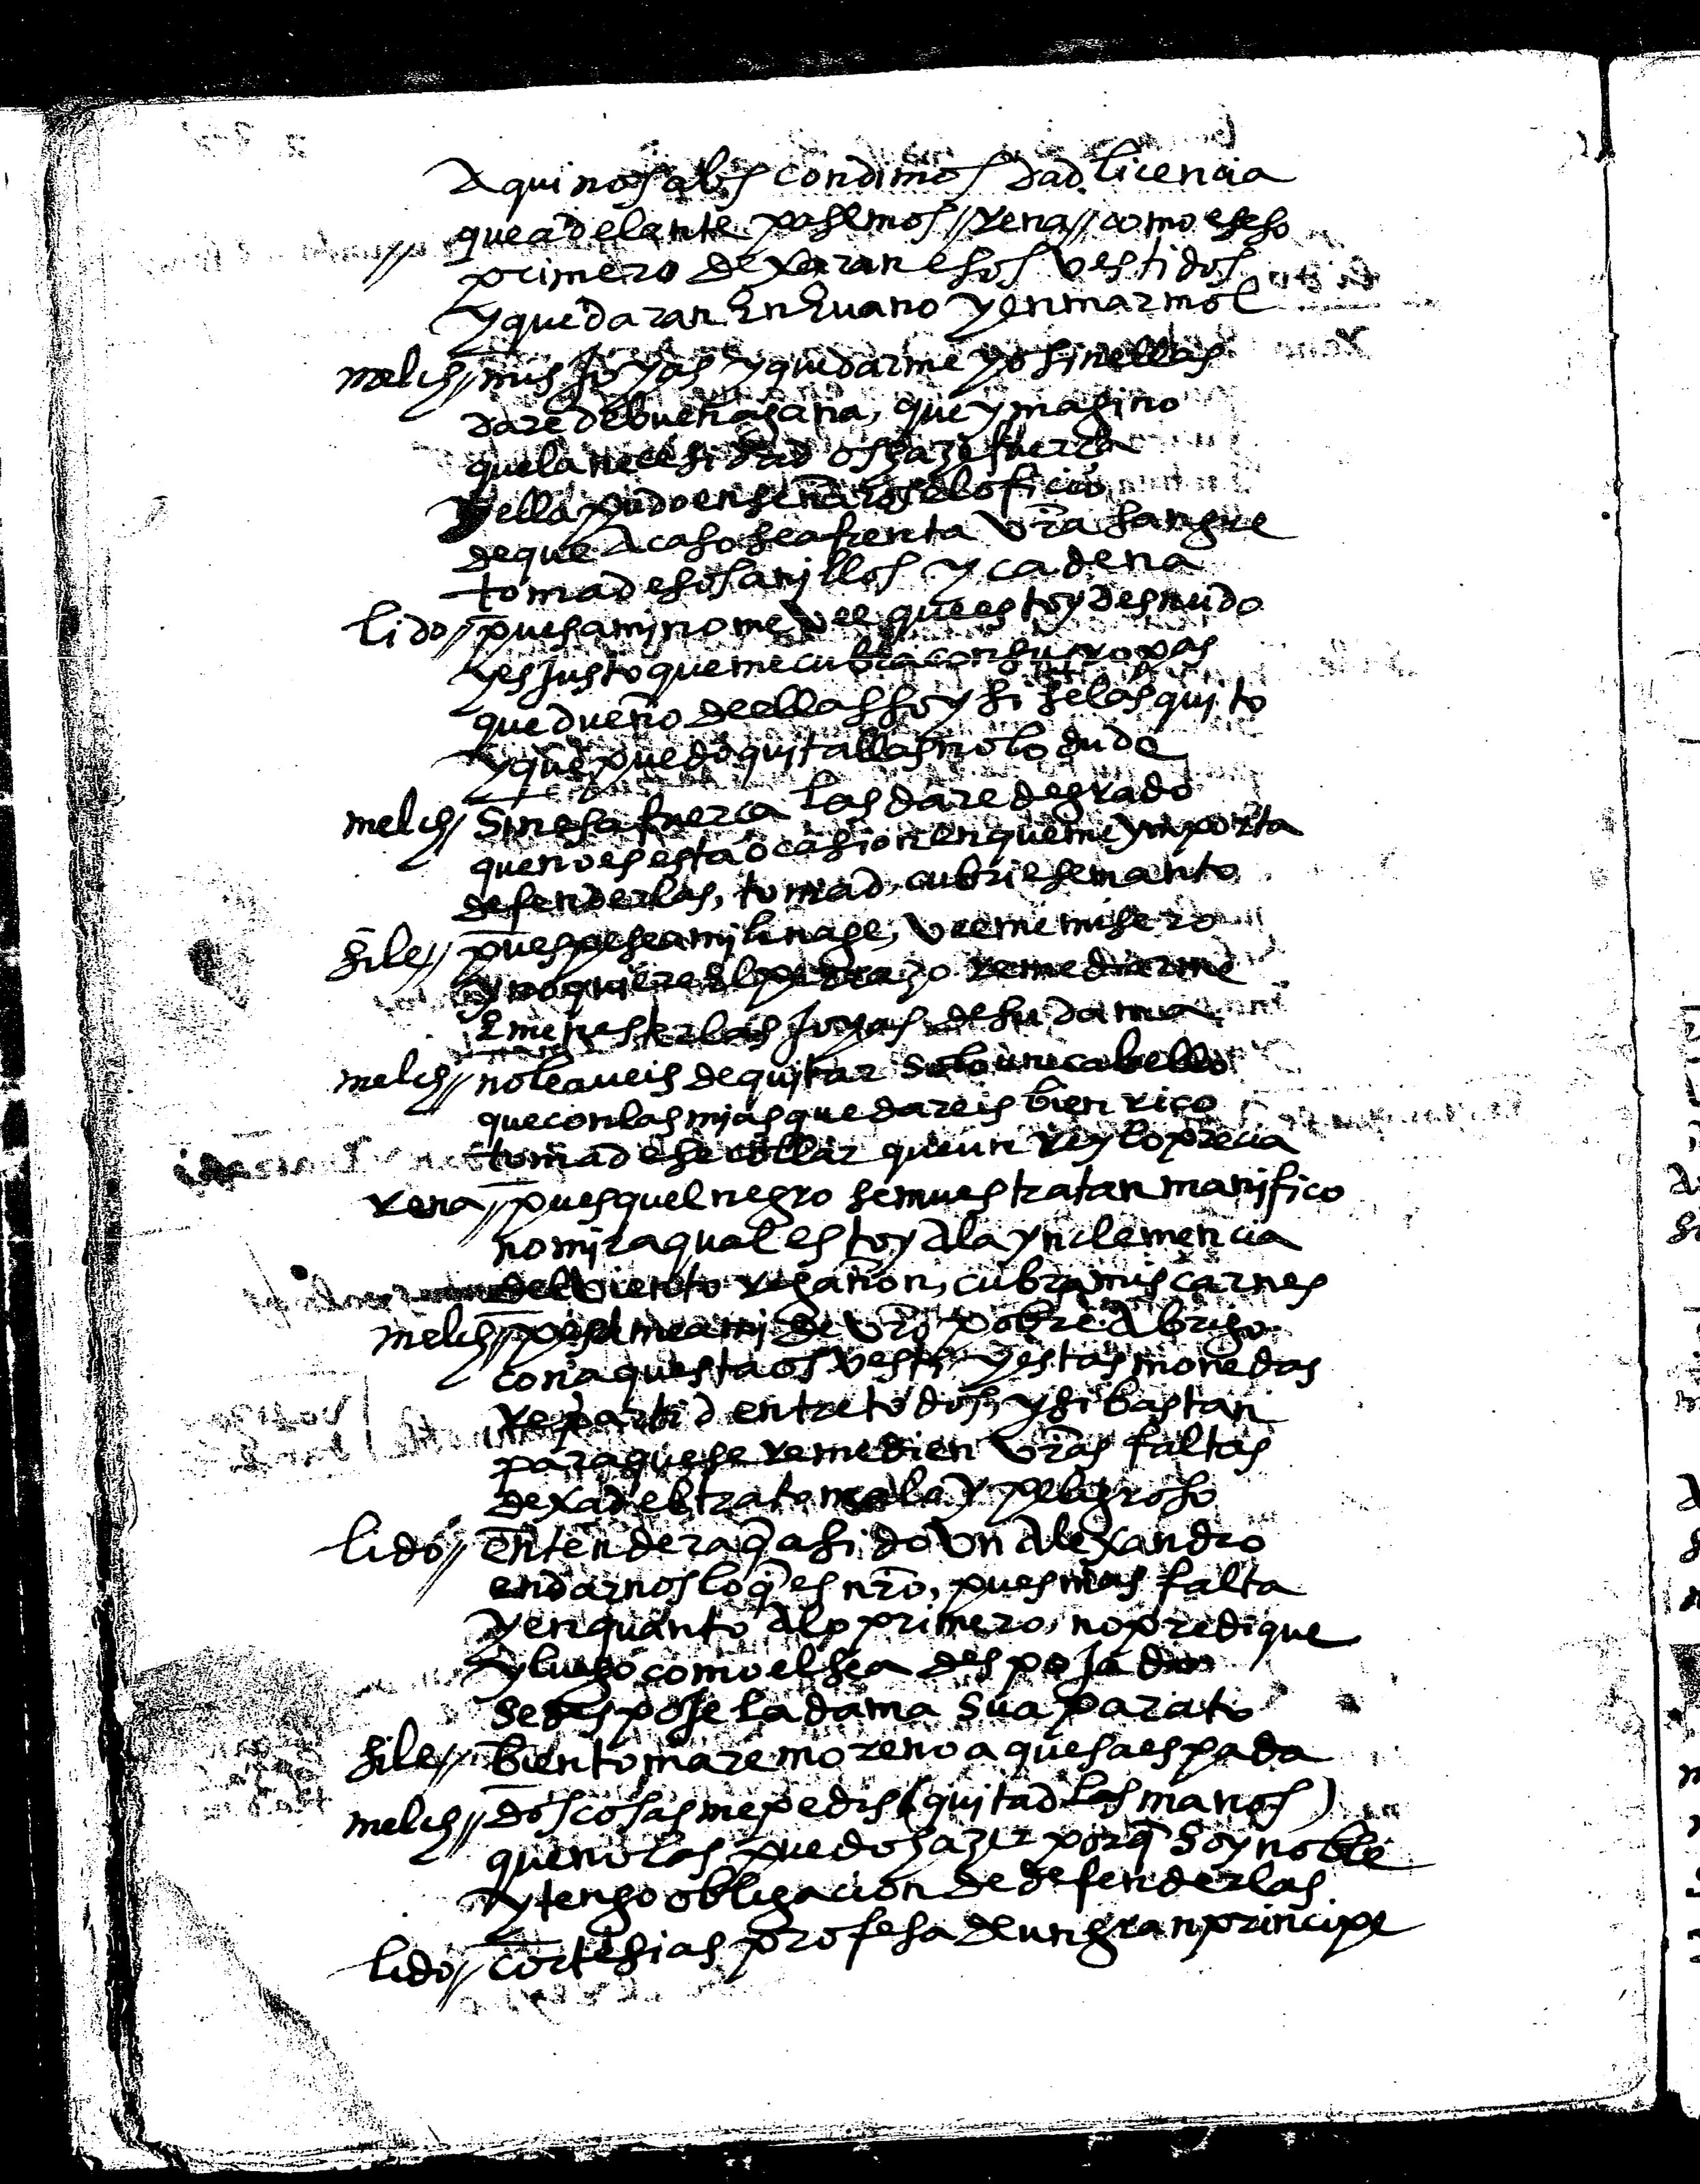 Aqui nos abscondimos dad licencia
que adelante pasemos // rena // como es eso
// primero dexaran esos vestidos
y quedaran en evano y en marmol
melch // mis joyas y quedarme yo sin ellas
dare de buena gana, que ymagino
que la necesidad os haze fuerça
y ella pudo enseñaros el oficio
de que acaso se afrenta vra sangre
tomad esos anillos y cadena
lido // pues a mi no me vee que estoy desnudo
y es justo que me cubra con sus ropas
que dueño de ellas soy si se las quito
y que puedo quitallas no lo dude
melch // sin esa fuerça las dare de grado
que no es esta ocasion en que me ymporta
defenderlas, tomad, cubrie se manto
file // pues pese a mi linage, veeme misero
y no quiere el perrazo remediarme
e menester las joyas de su dama
melch // no le aveis de quitar solo un cabello
que con las mias quedareis bien rico
tomad ese collar que un rey lo precia
rena // pues quel negro se muestra tan manifico
no mira qual estoy a la ynclemencia
del viento regañon, cubra mis carnes
melch // pesame a mi de vro pobre abrigo
con aquesta os vesti y estas monedas
repartid entre todos, y si bastan
para que se remedien vras faltas
dexad el trato malo y peligroso
lido // entendera q̃ a sido un Alexandro
en darnos lo q̃ es nro, pues mas falta
y en quanto a lo primero, no predique
y luego como el sea despojado
despoje la dama su aparato
file // bien tomare moreno aquesa espada
melch // dos cosas me pedis (quitad las manos)
que no las puedo hazer porq̃ soy noble
y tengo obligacion de defenderlas
lido // cortesias profesa de un gran principe